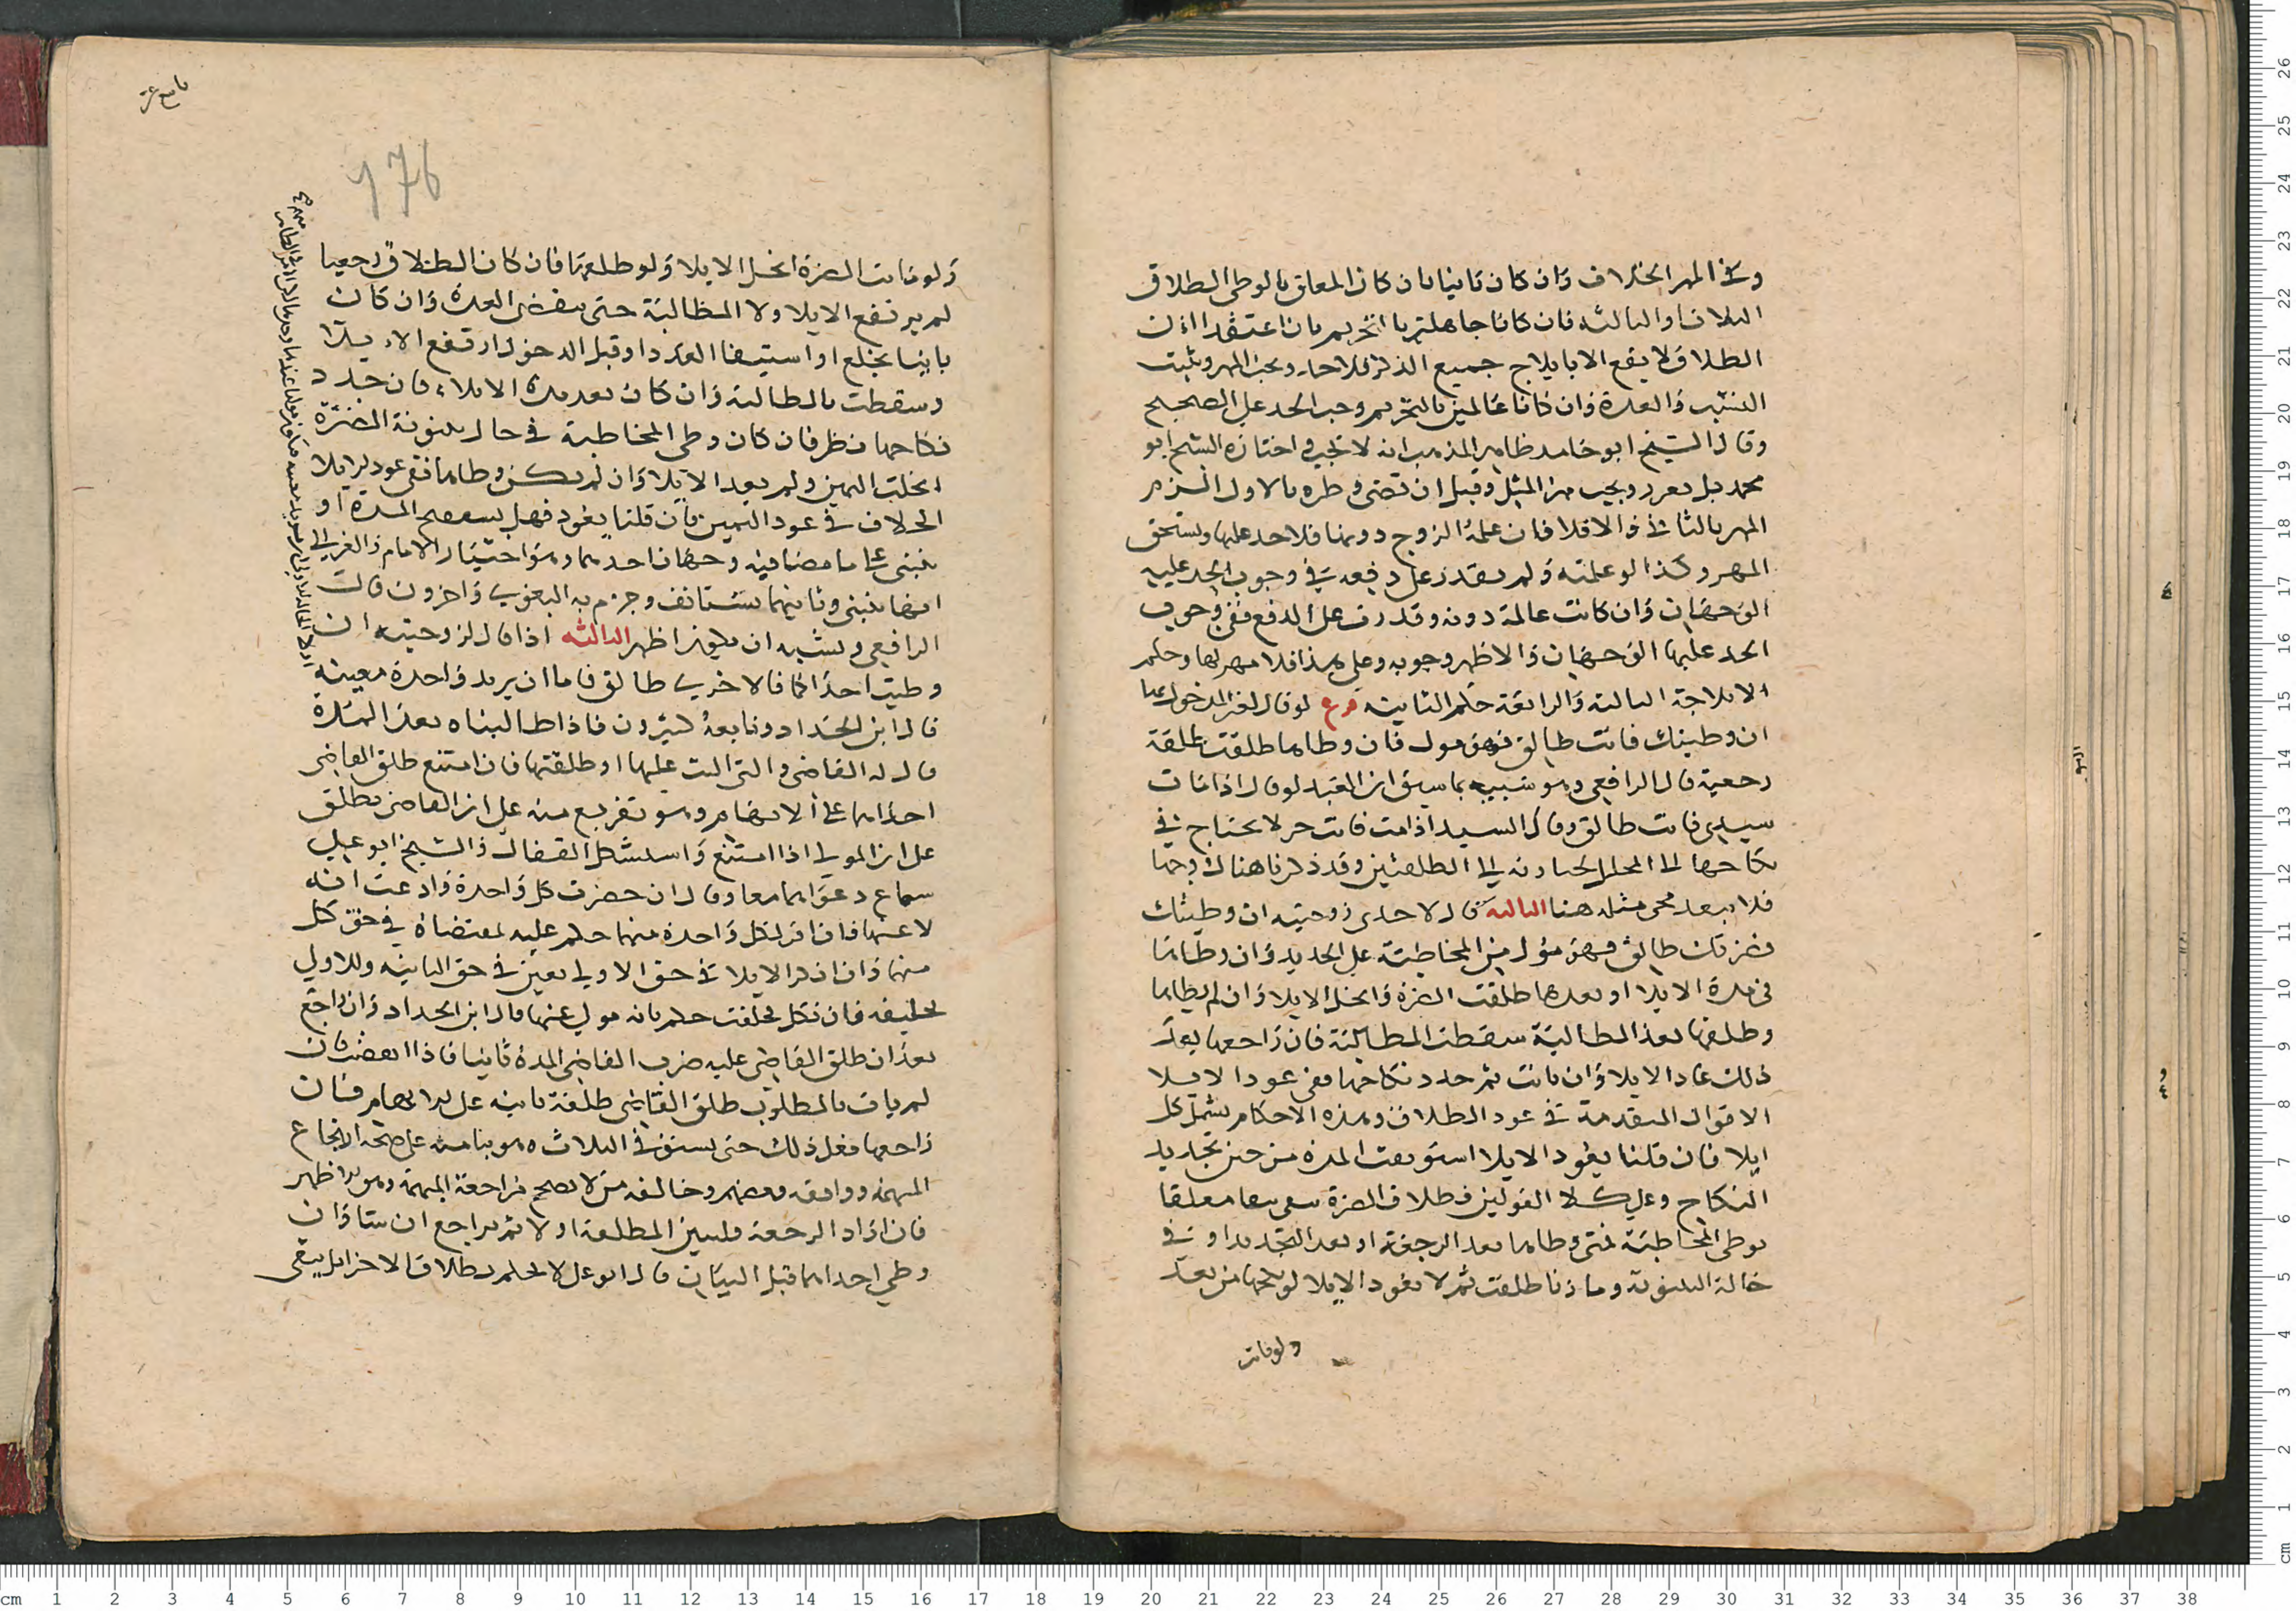 وفي المهر الخلاف وان كان ثانيا بان كان المعلق بالوطي الطلاق
الثلاث او الثالثة فان كانا جاهلين بالتحريم بان اعتقدا ان
الطلاق لا يقع الا بايلاج جميع الذكر فلا حد ويجب المهر ويثبت
النسب والعدة وان كانا عالمين بالتحريم وجب الحد على الصحيح
وقال الشيخ ابو حامد ظاهر المذهب انه لا يجب واختاره الشيخ ابو
محمد بل يعزر ويجب مهر المثل وقيل ان قضى وطره بالاول لم يلزم
المهر بالثاني والا فلا فان علمه الزوج دونها فلا حد عليها وتستحق
المهر وكذا لو علمته ولم تقدر على دفعه وفي وجوب الحد عليه
الوجهان وان كانت عالمة دونه وقدرت على الدفع ففي وجوب
الحد عليها الوجهان والاظهر وجوبه وعلى هذا فلا مهر لها وحكم
الايلاجة الثالثة والرابعة حكم الثانية فرع لو قال لغير المدخول بها
ان وطيتك فانت طالق فهو مول فان وطاها طلقت طلقة
رجعية قال الرافعي وهو شبيه بما سبق ان العبد لو قال اذا مات
سيدي فانت طالق وقال السيد اذا مت فانت حر لا يحتاج في
نكاحها الى المحلل لحدوثه الطلقتين وقد ذكرنا هناك وجها
فلا يبعد مجي مثله هنا الثالثة قال لاحدى زوجتيه ان وطيتك
فضرتك طالق فهو مؤل من المخاطبة على الجديد وان وطئها
في مدة الايلا او بعدها طلقت الضرة وانحل الايلا وان لم يطاها
وطلقها بعد المطالبة سقطت المطالبة فان راجعها بعد
ذلك عاد الايلا وان بانت ثم جدد نكاحها ففي عود الايلا
الاقوال المتقدمة في عود الطلاق وهذه الاحكام تشمل كل
ايلا فان قلنا يعود الايلا استونفت المدة من حين تجديد
النكاح وعلى كلا القولين فطلاق الضرة يبقى معلقا
بوطي المخاطبة فمتى وطاها بعد الرجعة او بعد التجديد او في
حالة البينونة وما زنا طلقت ثم لا يعود الايلا لو نكحها من بعد
ولو ماتت
ولو ماتت الضرة انحل الايلا ولو طلقها فان كان الطلاق رجعيا
لم يرتفع الايلا ولا المطالبة حتى تنقضي العدة وان كان
باينا بخلع او استيفا العدد او قبل الدخول ارتفع الايلا
وسقطت المطالبة وان كان بعد مدة الايلاء فان جدد
نكاحها نظر فان كان وطي المخاطبة في حال بينونة الضرة
انحلت اليمين ولم يعد الايلا وان لم يكن وطاها ففي عود الايلا
الخلاف في عود اليمين فان قلنا يعود فهل يستفتح المدة او
يبنى على ما مضى فيه وجهان احدهما وهو اختيار الامام والغزالي
انها تنبني وثانيهما تستانف وجزم به البغوي واخرون قال
الرافعي ويشبه ان يكون اظهر الثالثة اذا قال لزوجتيه ان
وطيت احداكما فالاخرى طالق فاما ان يريد واحدة معينة
قال ابن الحداد وتابعه كثيرون فاذا طالبتاه بعد المدة
قال له القاضي والتي اليت عليها او طلقتها فان امتنع طلق القاضي
احداهما على الابهام وهو تفريع منه على ان القاضي يطلق
على ان المولي اذا امتنع واستشكل القفال والشيخ ابو علي
سماع دعواهما معا وقال ان حضرت كل واحدة وادعت انه
لا عنها فان اقر لكل واحدة منهما حكم عليه بمقتضاه في حق كل
منهما وان انكر الايلا في حق الاولى تعين في حق الثانية وللاولى
تحليفه فان نكل فحلفت حكم بانه مولي عنهما قال ابن الحداد وان راجع
بعد ان طلق القاضي عليه ضرب القاضي المدة ثانيا فاذا انقضت فان
لم يات بالمطلوب طلق القاضي طلقة ثانية على الابهام فان
راجعها فعل ذلك حتى يستوفي الثلاث وهو بنا منه على صحة ارتجاع
المبهمة ووافقه بعضهم وخالفه من لا يصحح مراجعة المبهمة وهو الاظهر
فان اراد الرجعة فليبين المطلقة اولا ثم يراجع ان شا وان
وطي احداهما قبل البيان قال ابو علي لا يحكم بطلاق الاخرى بل يبقى
176